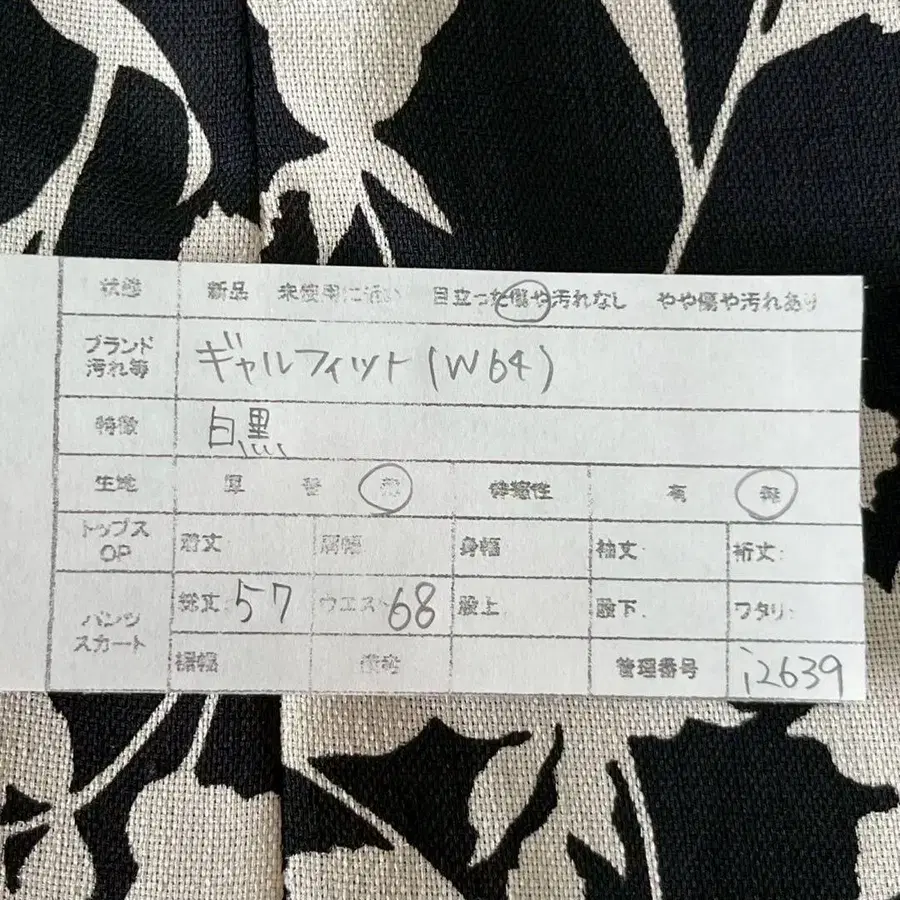 状態 新品 未使用に近い 目立った傷や汚れなし やや傷や汚れあり
ブランド
汚れ等
ギャルフィット(W64)
特徴 白黒
生地 厚 普 伸縮性 有 無
トップス
OP
着丈: 肩幅 身幅 袖丈: 裄丈:
パンツ
スカート
総丈:57 ウエスト68 股上 股下: ワタリ:
裾幅 管理番号 i2639